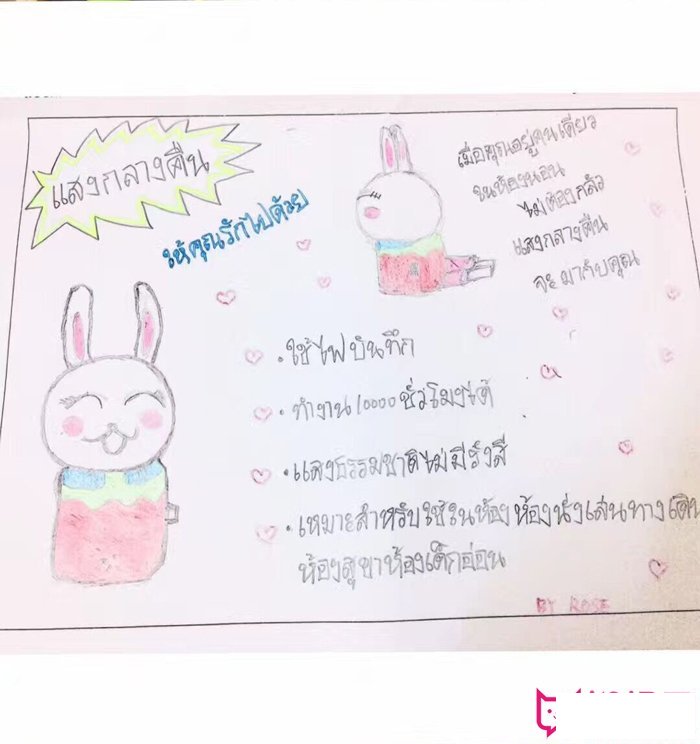 แสงกลางคืน
ให้คุณรักไปด้วย
เมื่อคุณอยู่คนเดียว
ในห้องนอน
ไม่ต้องกลัว
แสงกลางคืน
จะมากับคุณ
• ใช้ไฟบันทึก
• ทำงาน 10000 ชั่วโมงได้
• แสงธรรมชาติไม่มีรังสี
• เหมาะสำหรับใช้ในห้องห้องนั่งเล่นทางเดิน
ห้องสุขาห้องเด็กอ่อน
BY ROSE